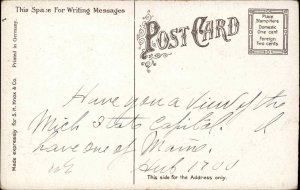 This Space For Writing Messages
POST CARD
Place
Stamp Here
Domestic
One cent
Foreign
Two cents
Printed in Germany.
Made expressly for S. H. Knox & Co.
Have you a view of the
Mich State Capital. I
have one of Mains.
This side for the Address only.